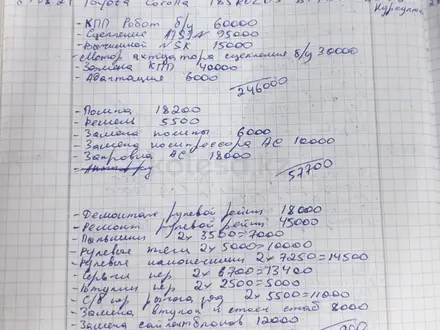 Toyota Corolla
- КПП Робот б/у 60000
- Сцепление AISIN 95000
- Выжимной NSK 15000
- Мотор актуатора сцепления б/у 30000
- Замена КПП 40000
- Адаптация 6000
246000
- Помпа 18200
- Ремень 5500
- Замена помпы 6000
- Замена компрессора АС 10000
- Заправка АС 18000
57700
- Демонтаж рулевой рейки 18000
- Ремонт рулевой рейки 45000
- Пыльники 2х3500=7000
- Рулевые тяги 2х5000=10000
- Рулевые наконечники 2х7250=14500
- Серьги пер 2х6700=13400
- Втулки пер 2х2500=5000
- С/б пер рычага зад 2х5500=11000
- Замена втулок и стоек стаб 8000
- Замена сайлентблоков 12000